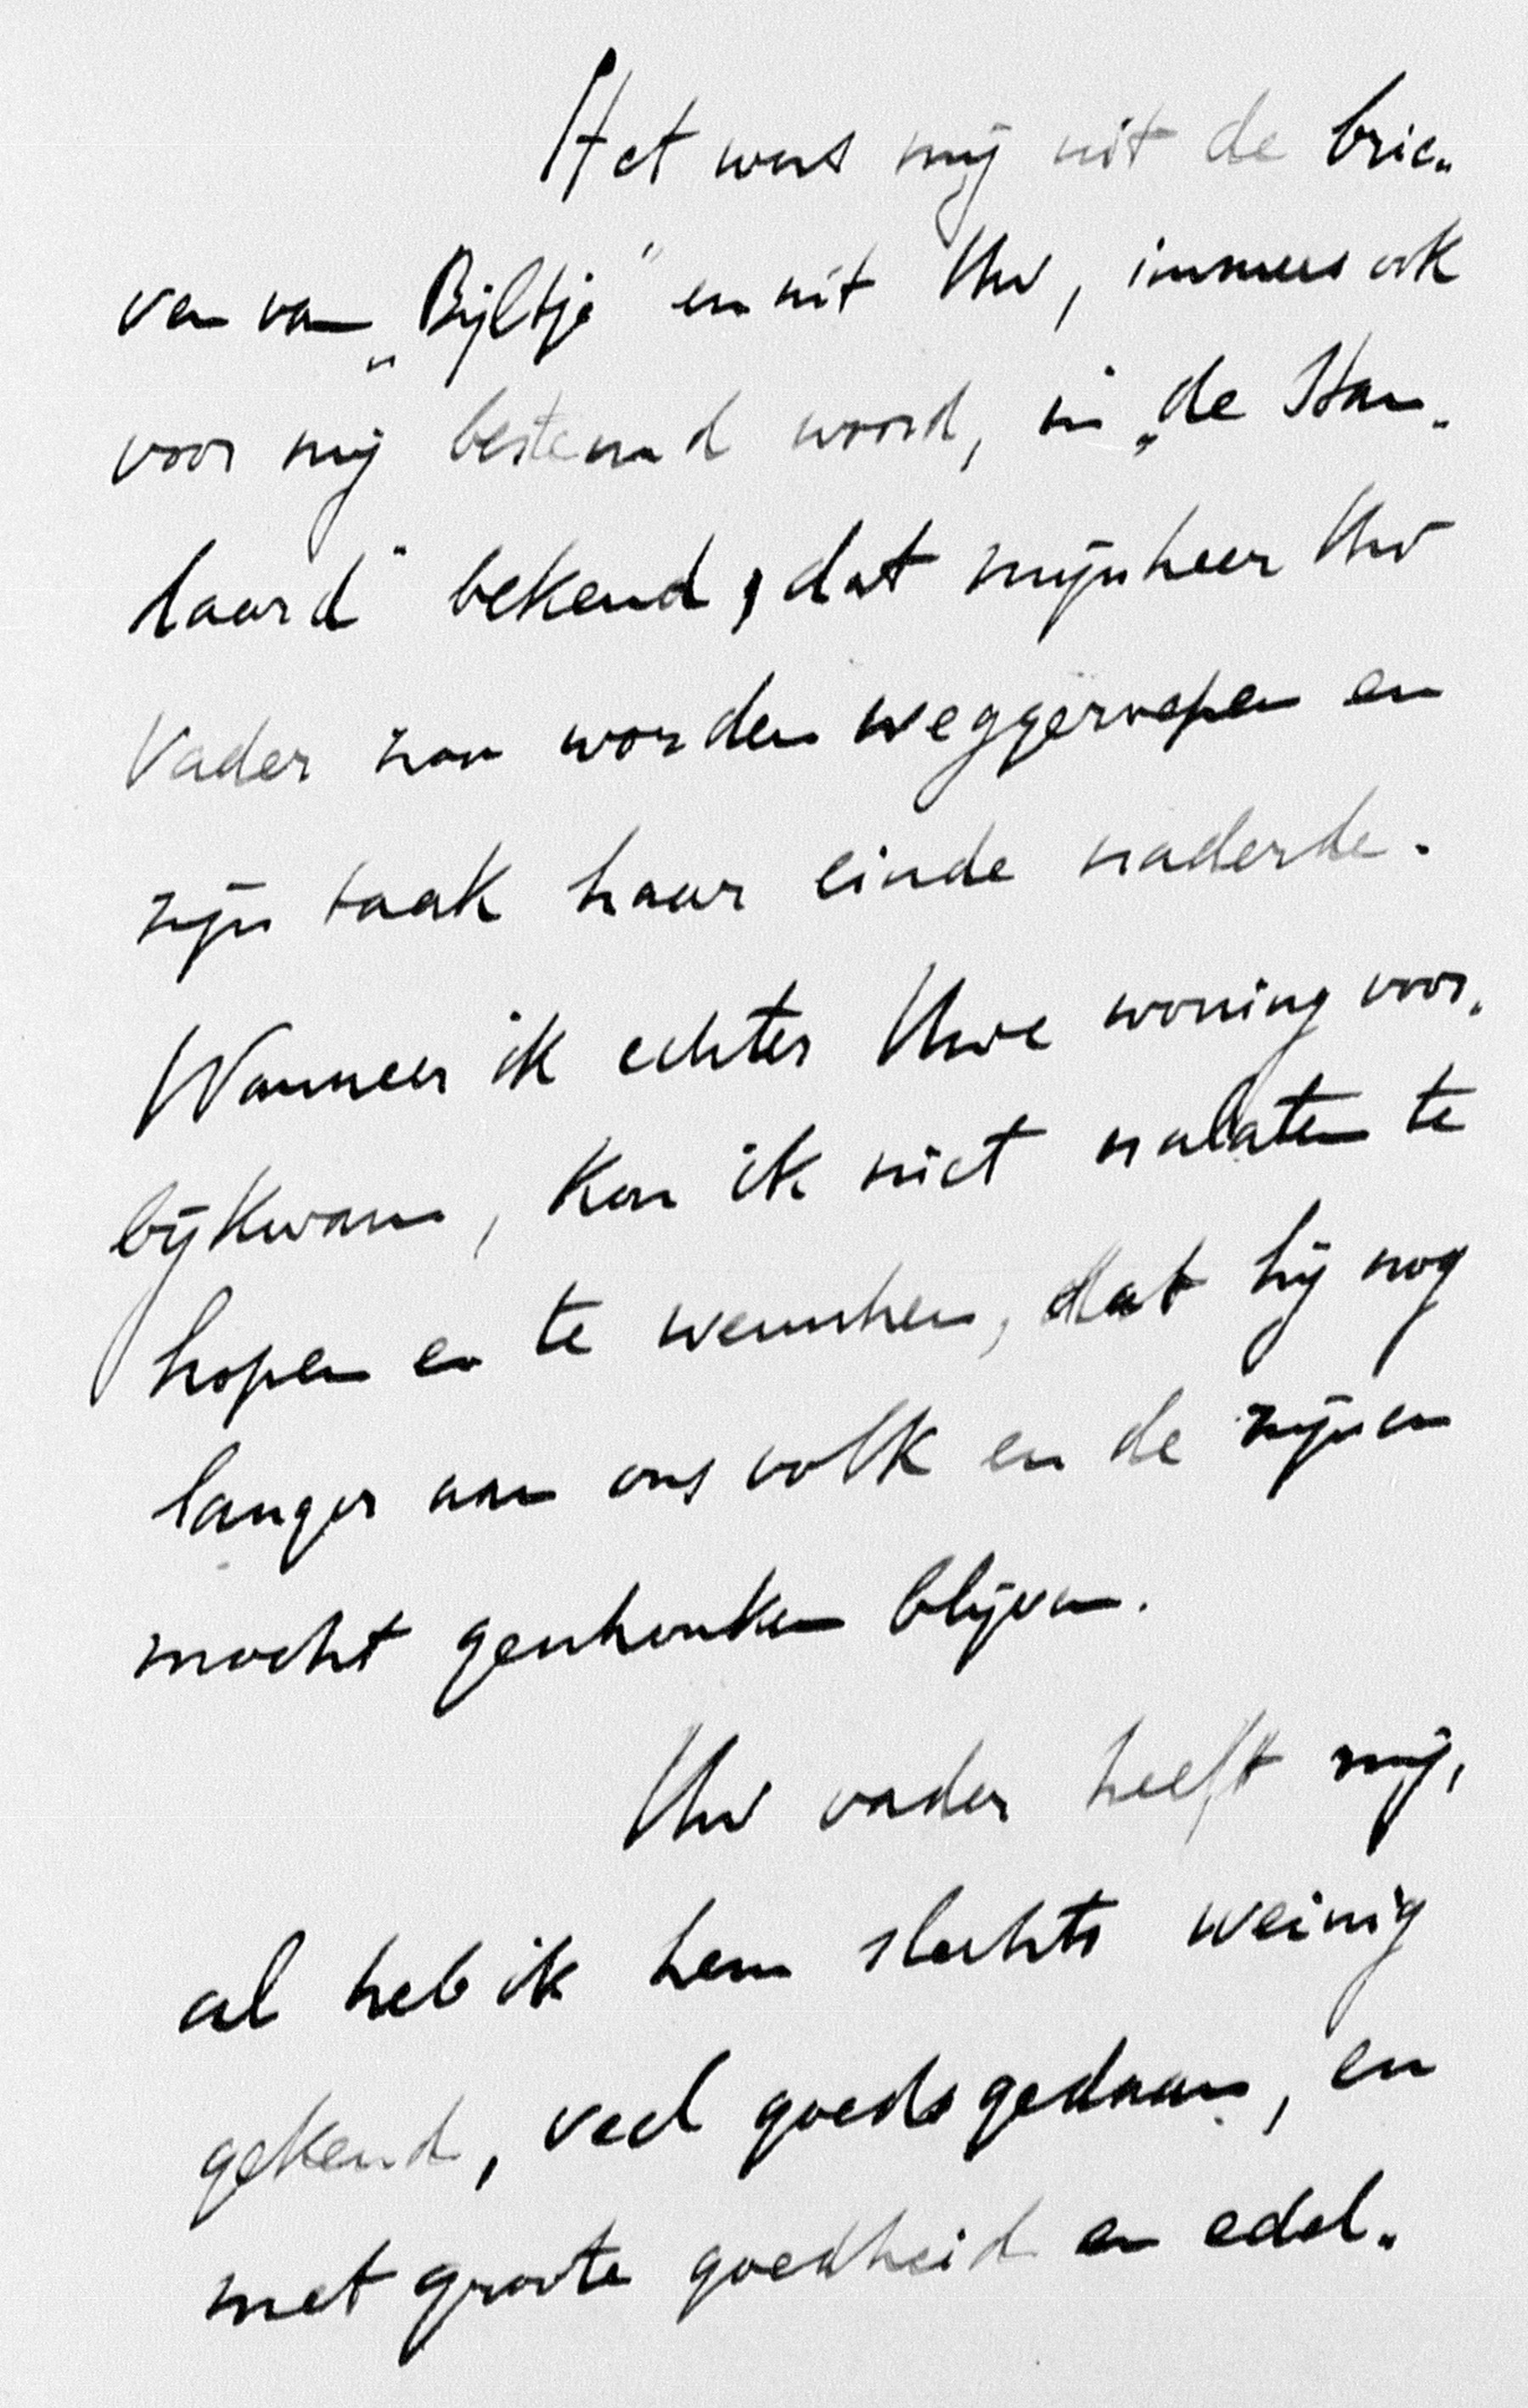 Het was mij uit de brie„
ven van „Bijltje" en uit Uw, immers ook
voor mij bestemd woord, in „de Stan„
daard" bekend, dat mijnheer Uw
Vader zou worden weggeroepen en
zijn taak haar einde naderde.
Wanneer ik echter Uwe woning voor„
bijkwam, kon ik niet nalaten te
hopen en te wenschen, dat hij nog
langer aan ons volk en de zijnen
mocht geschonken blijven.
Uw vader heeft mij,
al heb ik hem slechts weinig
gekend, veel goeds gedaan, en
met groote goedheid en edel„